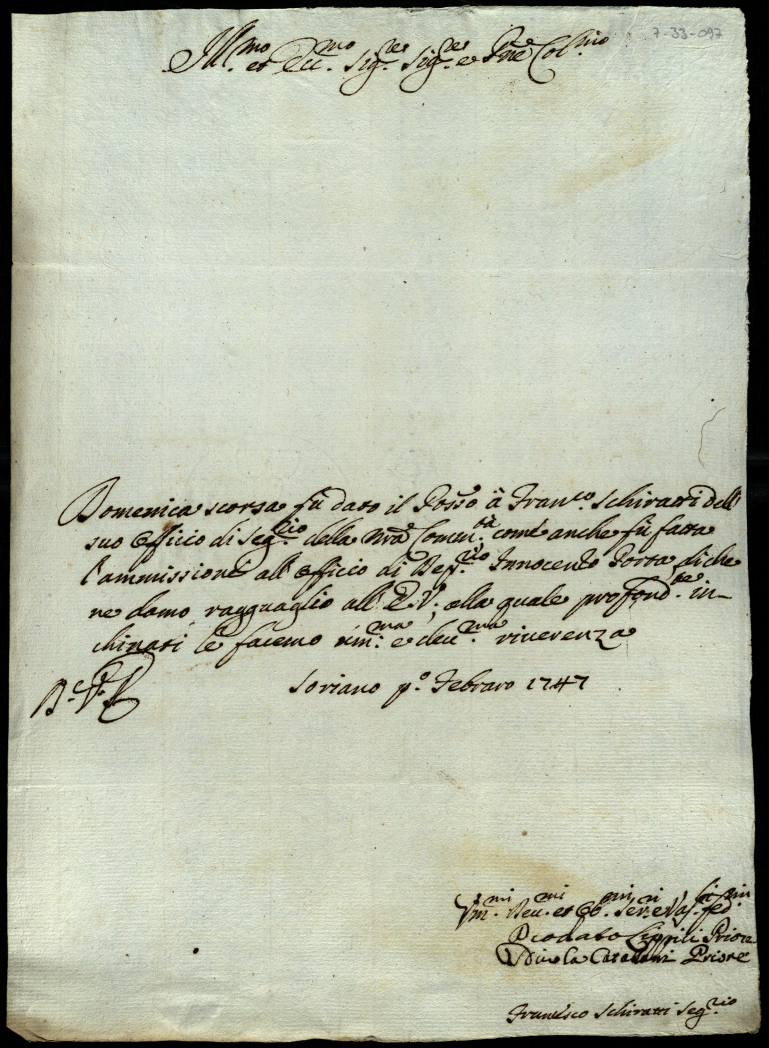 7-33-097
Ill.mo et Ecc.mo Sig.re Sig.re e P̃ne Col.mo
Domenica scorsa fù dato il Posso à Fran.co Schiratti dell
suo Officio di Seg.rio della nr̃a Comm.tà come anche fù fatta
l'ammissione all'Officio di Dep.rio Innocento Porta, di che
ne damo ragguaglio all' E. V., alla quale profond.te in-
chinati le facemo um.ma e dev.ma riverenza
Soriano p.o Febraro 1747
D. V. E.
Um.mi Dev.mi et Ob.mi Ser.ri e Vas.li fed.mi
Diodato Priore
Nicola Priore
Francesco Schiratti Seg.rio